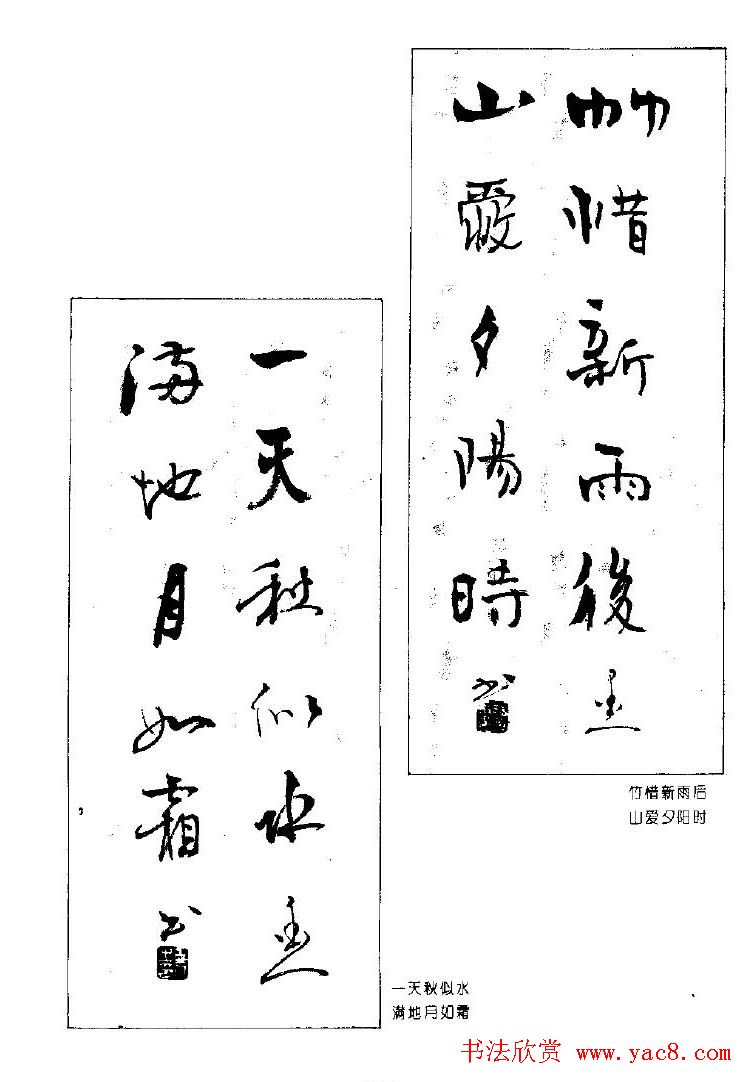 竹惜新雨後
山愛夕陽時书
竹惜新雨后
山爱夕阳时
一天秋似水
滿地月如霜书
一天秋似水
满地月如霜
书法欣赏 www.yac8.com